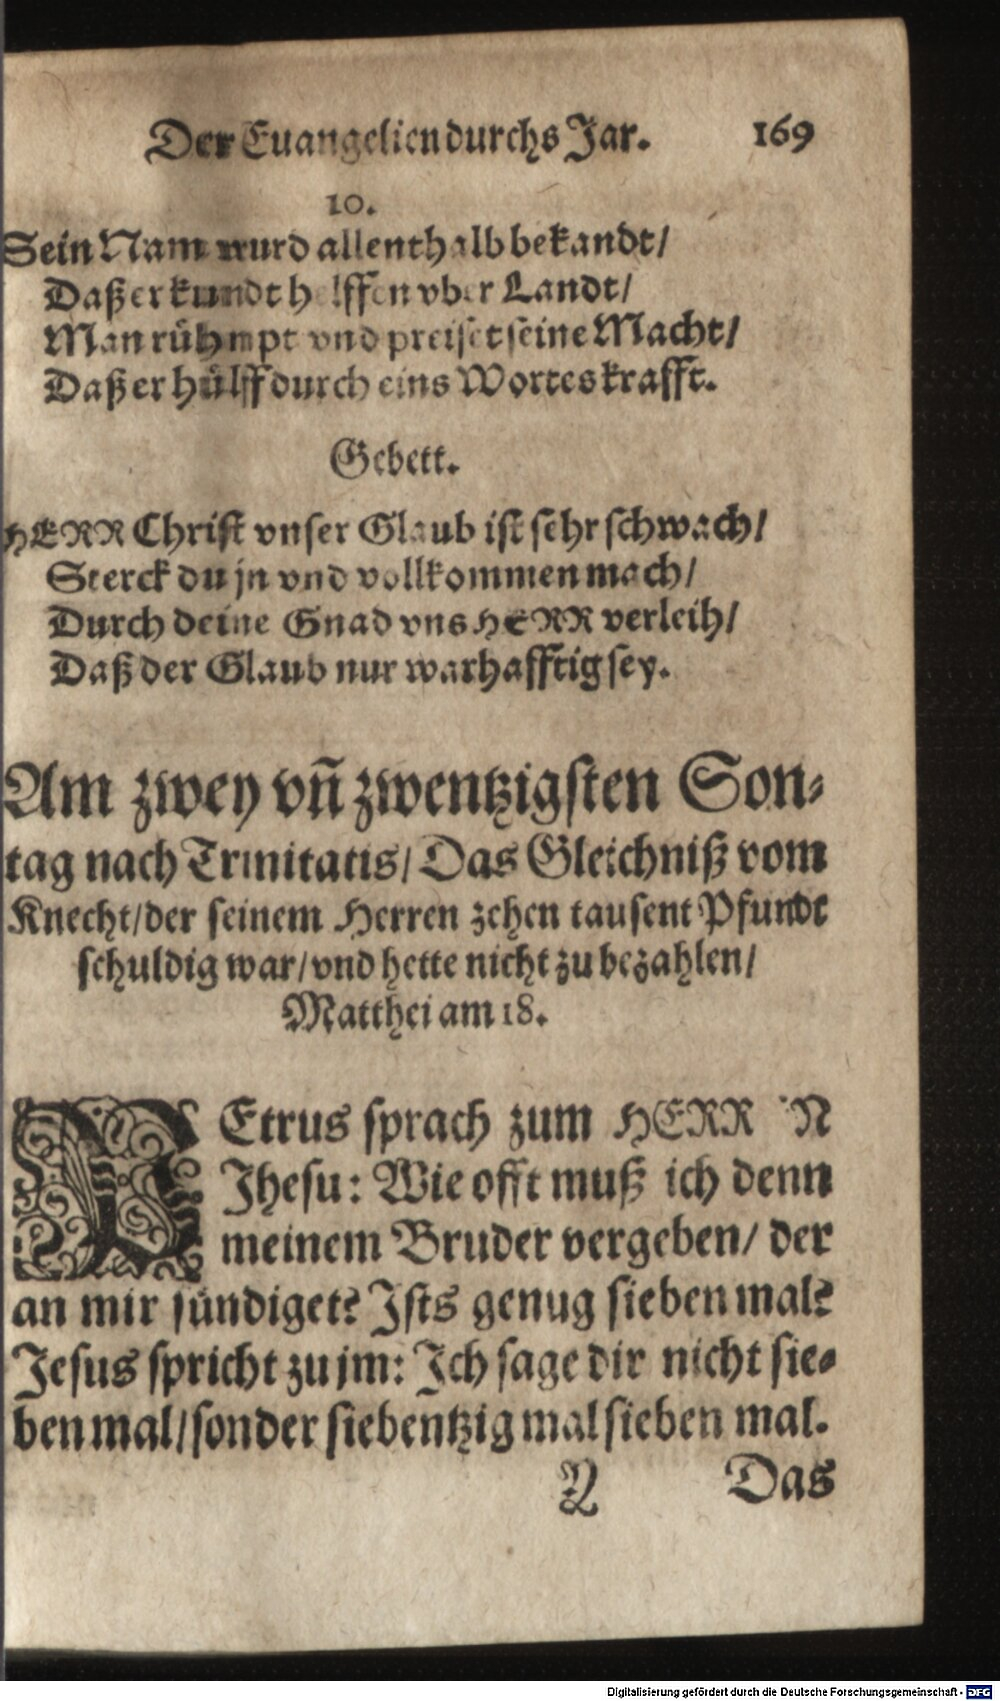 Der Euangelien durchs Jar. 169
10.
Sein Nam wurd allenthalb bekandt/
Daß er kundt helffen vber Landt/
Man rühmpt vnd preiset seine Macht/
Daß er hülff durch eins Wortes krafft.
Gebett.
HERR Christ vnser Glaub ist sehr schwach/
Sterck du jn vnd vollkommen mach/
Durch deine Gnad vns HERR verleih/
Daß der Glaub nur warhafftig sey.
Am zwey vñ zwentzigsten Son-
tag nach Trinitatis/ Das Gleichniß vom
Knecht/ der seinem Herren zehen tausent Pfundt
schuldig war/ vnd hette nicht zu bezahlen/
Matthei am 18.
PEtrus sprach zum HERRN
Jhesu: Wie offt muß ich denn
meinem Bruder vergeben/ der
an mir sündiget? Jsts genug sieben mal?
Jesus spricht zu jm: Jch sage dir nicht sie-
ben mal/ sonder siebentzig mal sieben mal.
Y Das
Digitalisierung gefördert durch die Deutsche Forschungsgemeinschaft - DFG